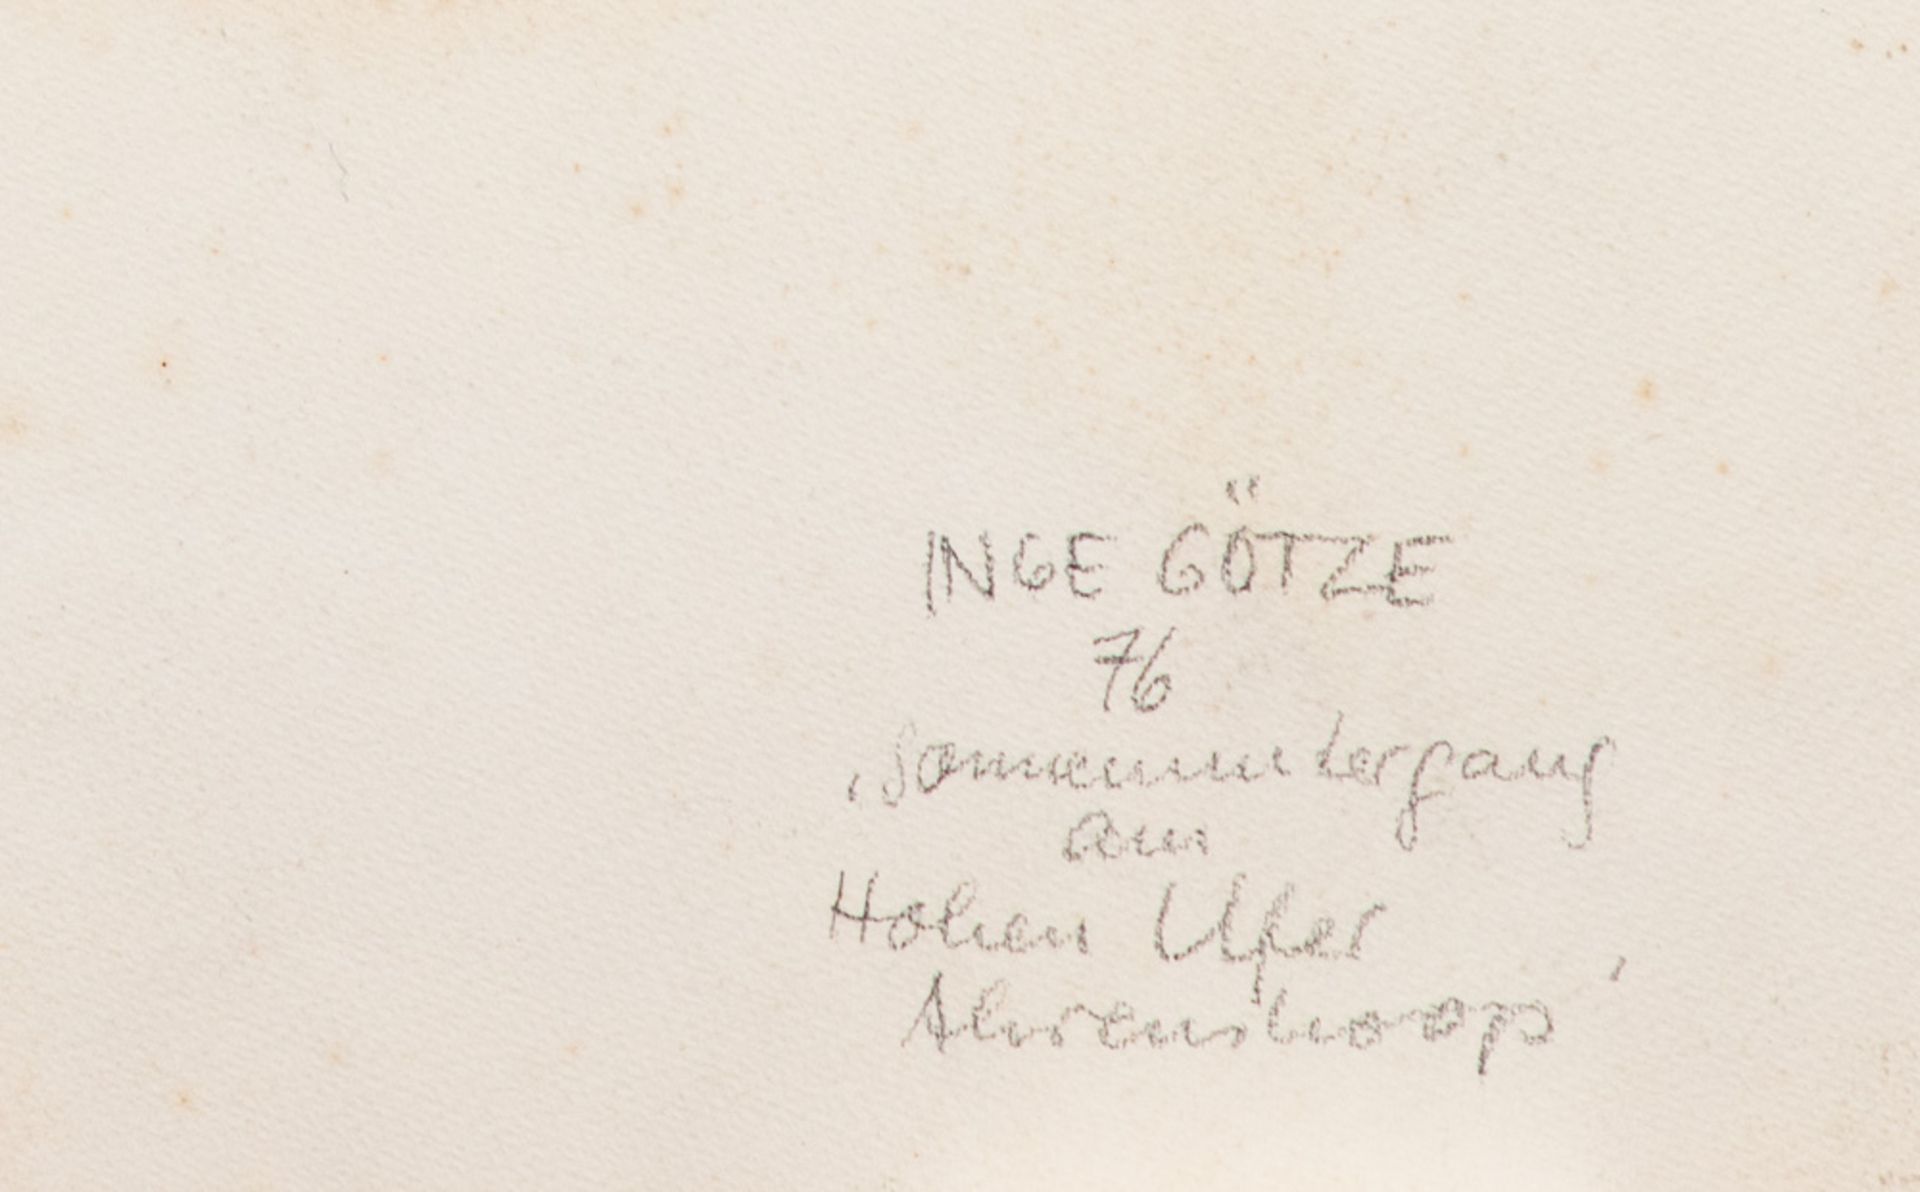 INGE GÖTZE
76
‚Sonnenuntergang
am
Hohen Ufer
Ahrenshoop'